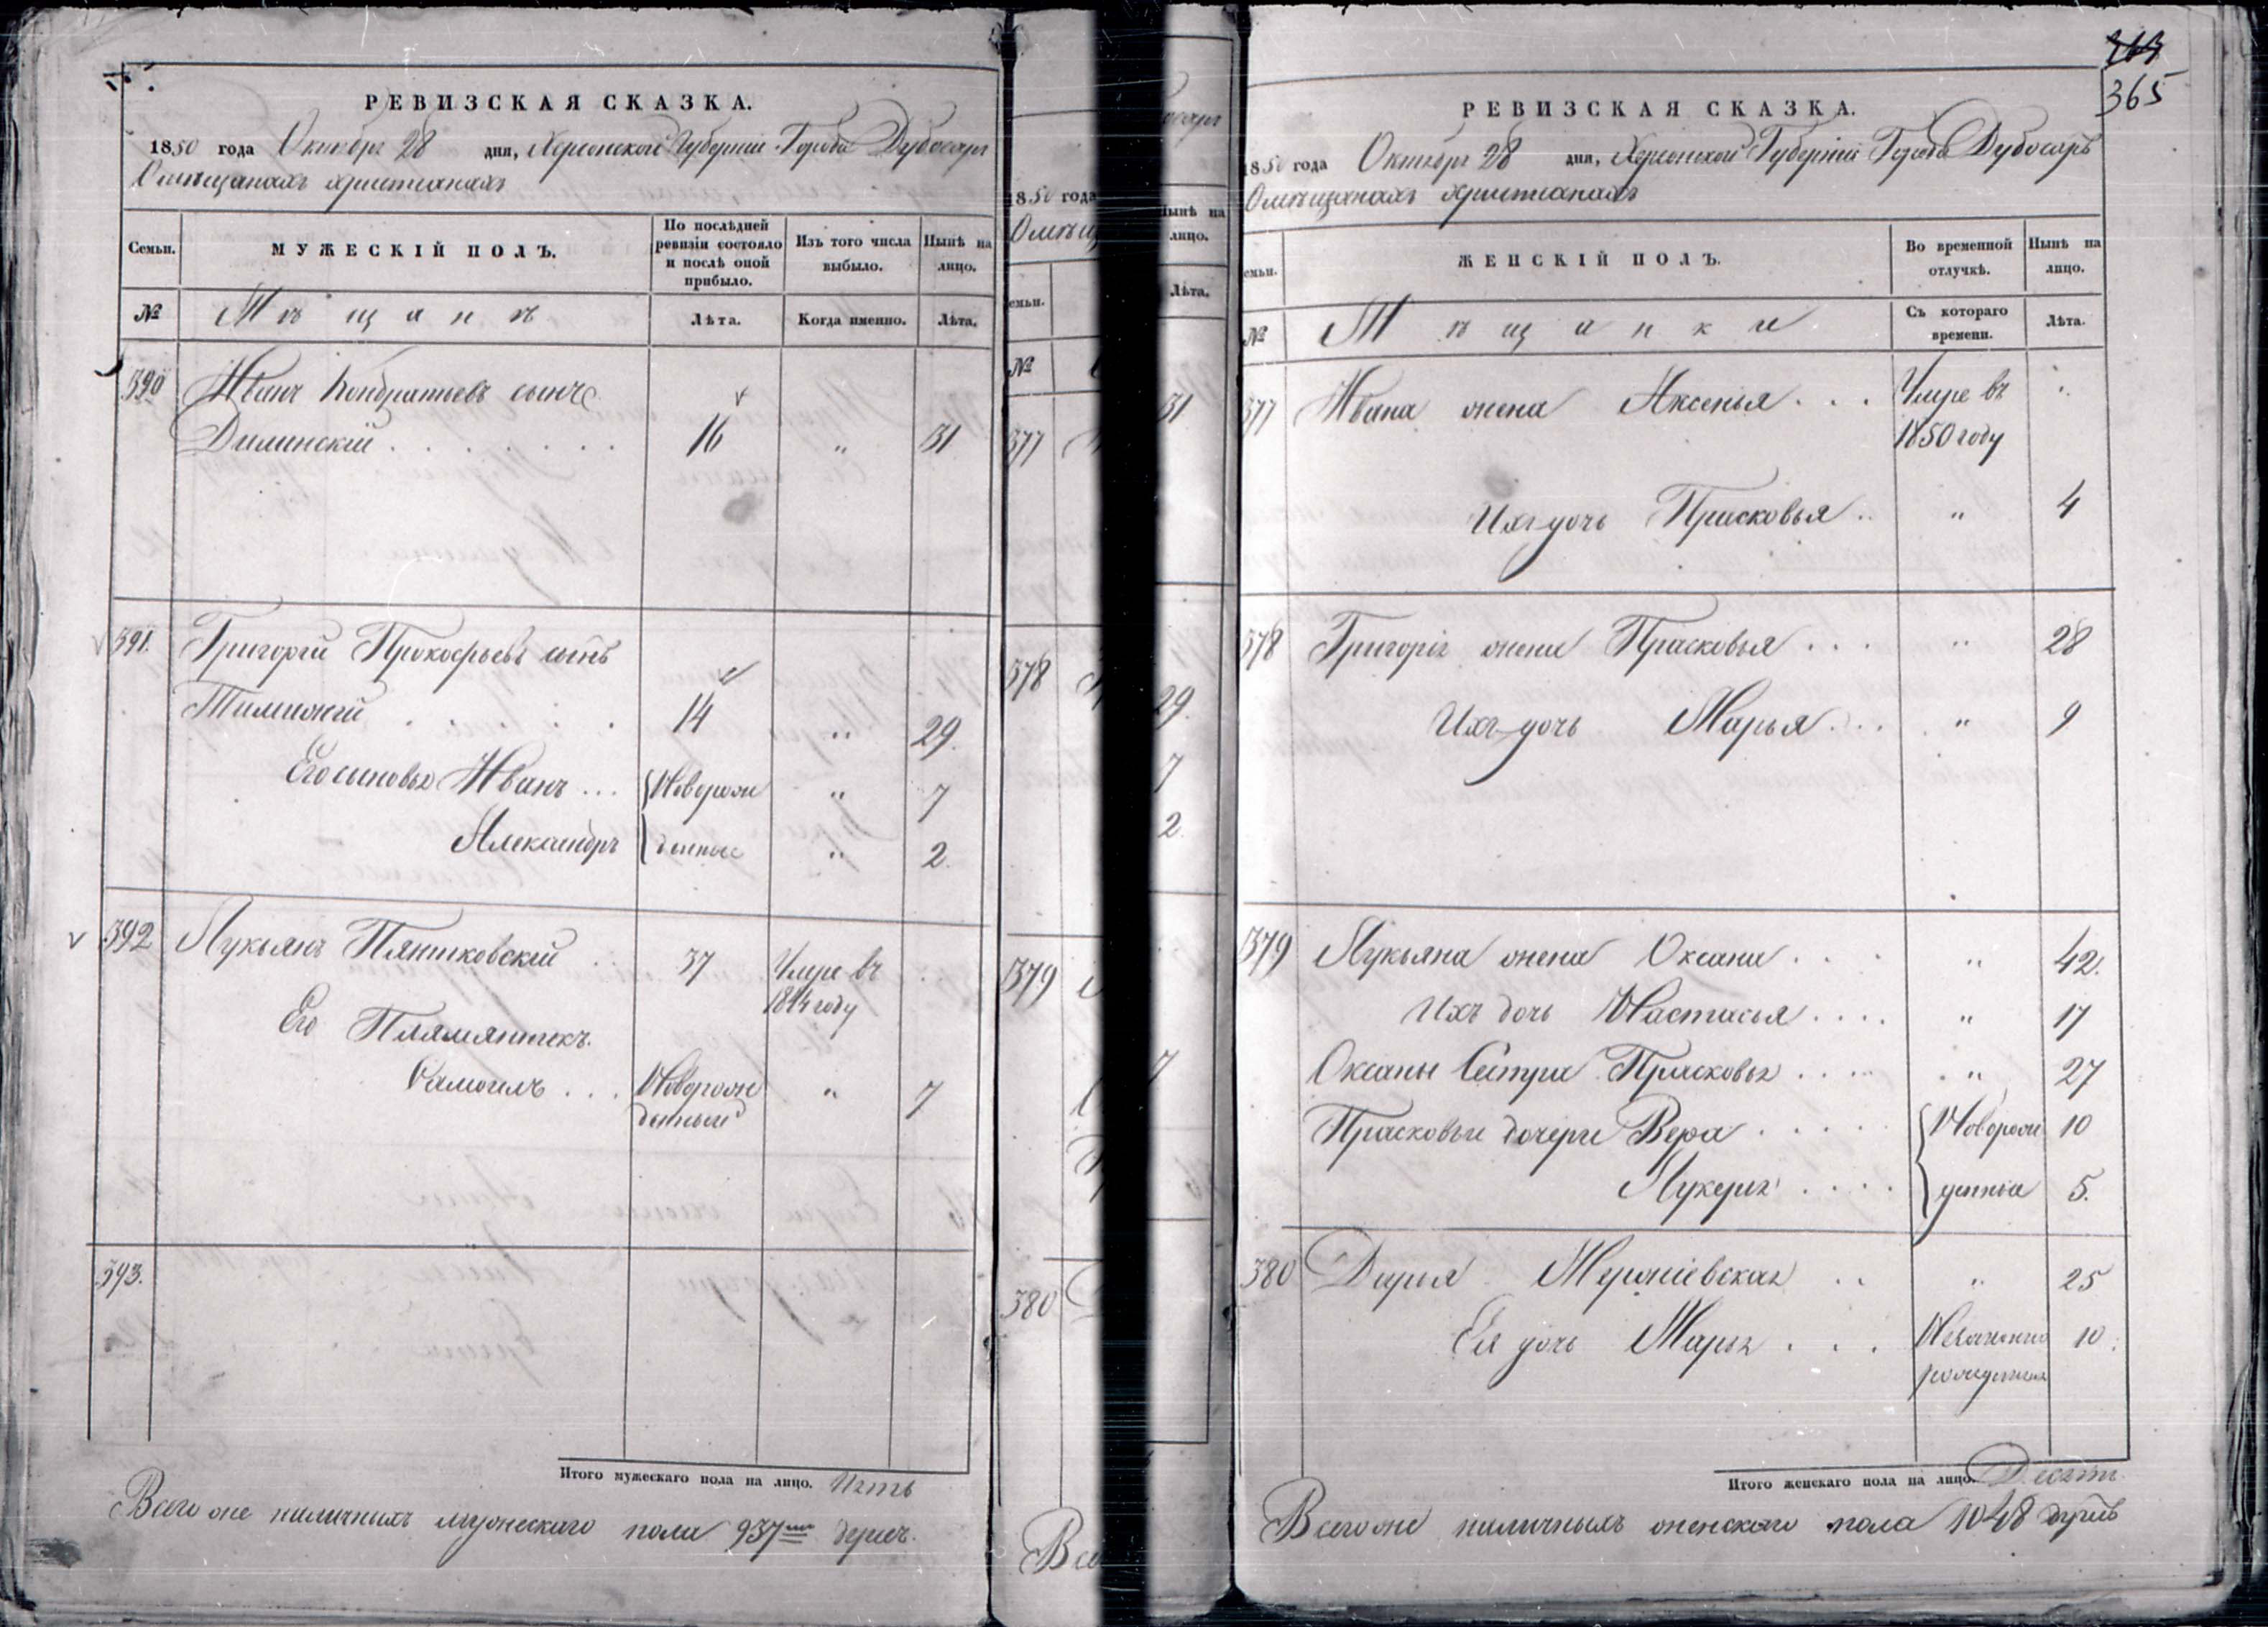 РЕВИЗСКАЯ СКАЗКА.
1850 года Октября 28 дня, Херсонской Губерніи Города Дубосаръ
О мѣщанахъ христианахъ
Семьи.
МУЖЕСКІЙ ПОЛЪ.
По послѣдней ревизіи состояло и послѣ оной прибыло.
Изъ того числа выбыло.
Нынѣ на лицо.
№
Мѣщанѣ
Лѣта.
Когда именно.
Лѣта.
390 Иванъ Кондратьевъ сынъ
16 " 31
391. Григорій Прокофьевъ сынъ
14 " 29.
Его сыновья Иванъ ... Новорож " 7
Александръ денные " 2.
392 Лукьянъ Пятковскій . 37 Умре въ
1844 году
Его Племянтекъ.
Самоилъ . . . Новорож " 7
денный
393.
Итого мужескаго пола на лицо.
Всего же наличныхъ мужескаго пола 937 душъ.
1850 года
семьи.
№
377
378
379
380
Все
Нынѣ на лицо.
Лѣта.
31
29.
7
2.
7
363
365
РЕВИЗСКАЯ СКАЗКА.
1850 года Октября 28 дня, Херсонской Губерніи Города Дубосаръ
О мѣщанахъ христианахъ
семьи.
ЖЕНСКІЙ ПОЛЪ.
Во временной отлучкѣ.
Нынѣ на лицо.
№
Мѣщанки
Съ котораго времени.
Лѣта.
377 Ивана жена Аксенья . . . Умре въ
1850 году
Ихъ дочь Прасковья .. " 4
378 Григорія жена Прасковья . . . " 28
Ихъ дочь Марья . . . " 9
379 Лукьяна жена Оксана . . . " 42.
Ихъ дочь Настасья . . . . " 17
Оксаны Сестра Прасковья . . . " 27
Прасковьи дочери Вера . . . . . Новорож 10
Лукерья . . . . денныя 5.
380 Дарья .. " 25
Ея дочь Марья . . . Незаконно 10.
рожденная
Итого женскаго пола на лицо. Десять
Всего же наличныхъ женскаго пола 1048 душъ